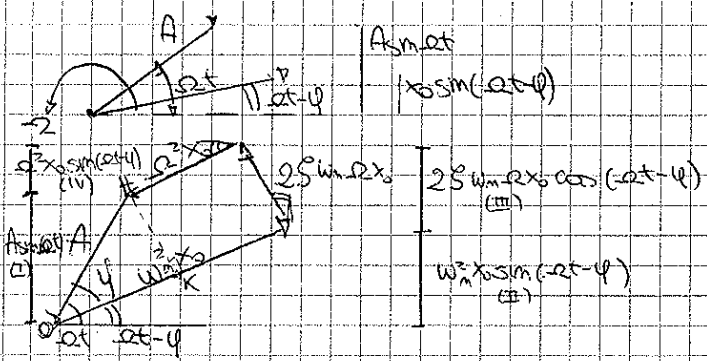 A
A sin Ωt
Ωt
x₀ sin(Ωt-φ)
Ωt-φ
Ω
Ω²x₀ sin(Ωt-φ)
(IV)
Ω²x₀
2ζωₙΩx₀
2ζωₙΩx₀ cos(Ωt-φ)
(III)
A sin Ωt
(I)
A
ωₙ²x₀
K
φ
ωₙ²x₀ sin(Ωt-φ)
(II)
O
Ωt
Ωt-φ